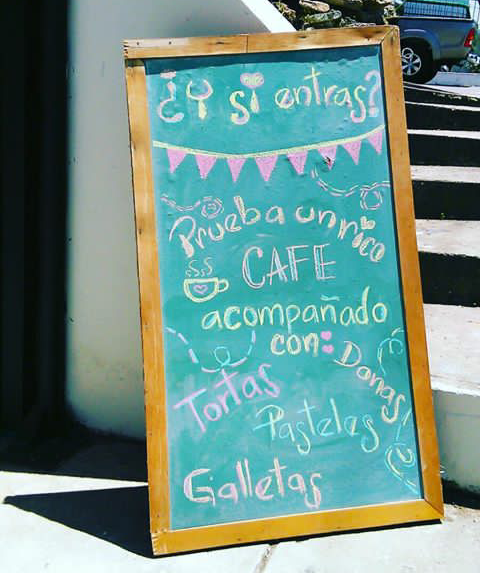 ¿Y si entras?
Prueba un rico
CAFE
acompañado
con:
Donas
Tortas
Pasteles
Galletas